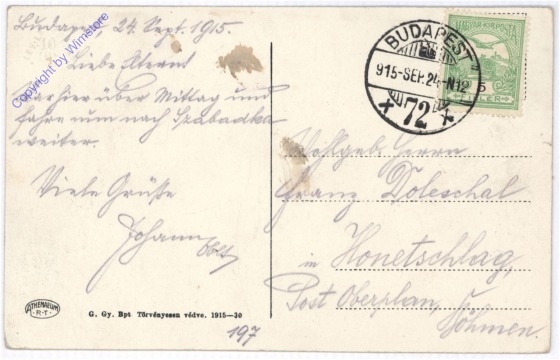 Budapest, 24. Sept. 1915.
Liebe Eltern!
War hier über Mittag und
fahre nun nach Szabadka
weiter.
Viele Grüße
Johann
Wohlgeb. Herrn
Franz Doleschal
in Honetschlag,
Post Oberplan,
Böhmen.
BUDAPEST
915-SEP.24-N12
72
5
ATHENAEUM
R.T.
G. Gy. Bpt Törvényesen védve. 1915—30
197
Copyright by Wimstore